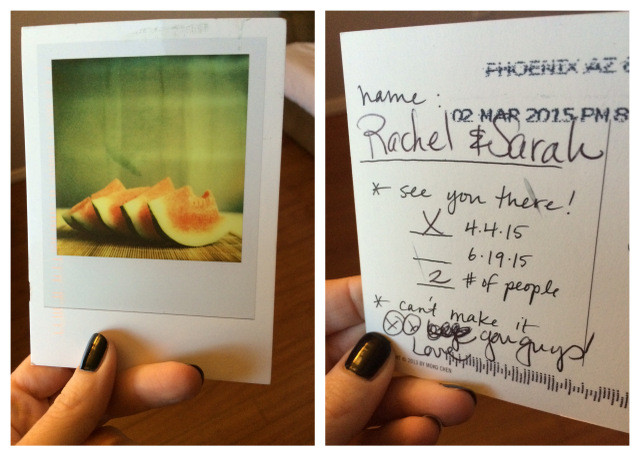 PHOENIX AZ
name:
02 MAR 2015 PM 8
Rachel & Sarah
* see you there!
X 4.4.15
6.19.15
2 # of people
* can't make it
you guys!
Love
2012 BY MOKU CHEN